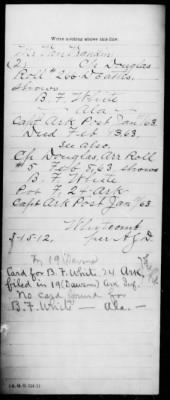 Write nothing above this line.
(2) Cp Douglas
Roll # 206 Deaths.
shows
B. F. White
Ala.
Capt Ark Post Jan 63
Died Feb 63.
See also
Cp Douglas, Arr Roll
#5 Feb 63 shows
B. F. White
Pvt 24 Ark
Capt Ark Post Jan /63
Whitcomb
per
In 19 (Dawson)
Card for B. F. White, 24 Ark
filed in 19 (Dawson's) Ark Inf.
No card found for
B. F. White — Ala. —